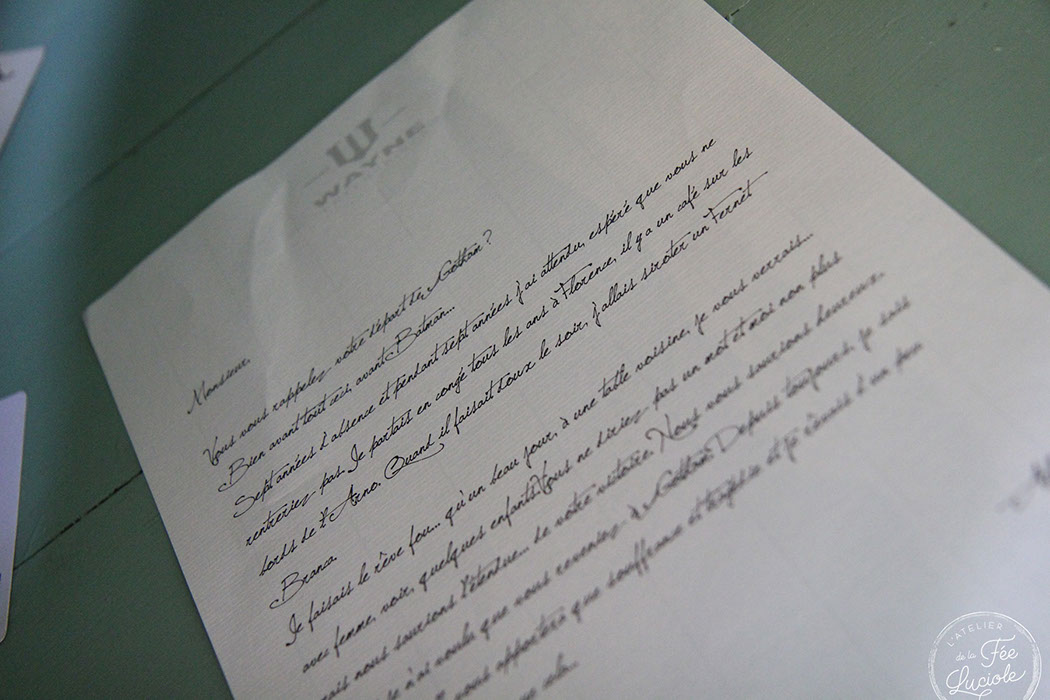 W
WAYNE
Monsieur,
Vous vous rappelez votre départ de Gotham?
Bien avant tout ceci, avant Batman...
Sept années d'absence et pendant sept années j'ai attendu, espéré que vous ne
rentreriez pas. Je partais en congé tous les ans à Florence, il y a un café sur les
bords de l'Arno. Quand il faisait doux le soir, j'allais siroter un Fernet
Branca.
Je faisais le rêve fou... qu'un beau jour, à une table voisine, je vous verrais...
avec femme, voir, quelques enfants. Vous ne diriez pas un mot et moi non plus
mais nous saurions l'étendue... de votre victoire. Nous vous saurions heureux.
Je n'ai voulu que vous reveniez à Gotham. Depuis toujours, je sais
vous apportera que souffrance et tragédie et
cela...
L'ATELIER
de la
Fée
Luciole